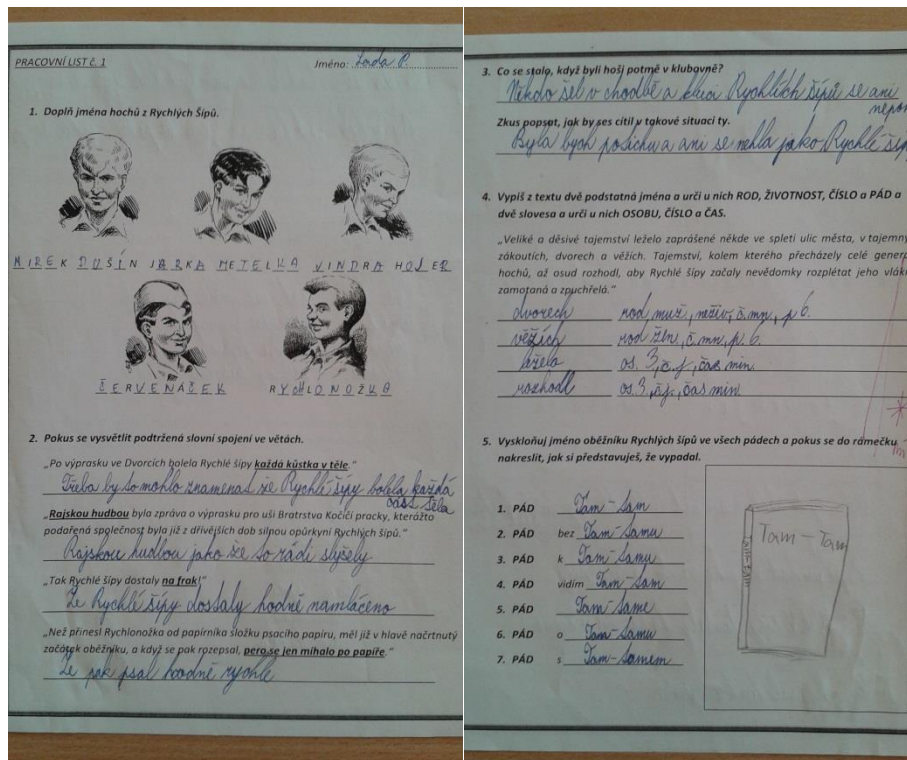 PRACOVNÍ LIST č. 1
Jméno: Lada P.
1. Doplň jména hochů z Rychlých Šípů.
MIREK DUŠÍN JARKA METELKA JINDRA HOJER
ČERVENÁČEK RYCHLONOŽKA
2. Pokus se vysvětlit podtržená slovní spojení ve větách.
„Po výprasku ve Dvorcích bolela Rychlé šípy každá kůstka v těle."
Třeba by to mohlo znamenat že Rychlé šípy bolela každá
část těla
„Rajskou hudbou byla zpráva o výprasku pro uši Bratrstva Kočičí pracky, kterážto
podařená společnost byla již z dřívějších dob silnou opůrkyní Rychlých šípů."
Rajskou hudbou jako že to rádi slyšely
„Tak Rychlé šípy dostaly na frak!"
Že Rychlé šípy dostaly hodně namláceno
„Než přinesl Rychlonožka od papírníka složku psacího papíru, měl již v hlavě načrtnutý
začátek oběžníku, a když se pak rozepsal, pero se jen míhalo po papíře."
Že pak psal hodně rychle
3. Co se stalo, když byli hoši potmě v klubovně?
Někdo šel v chodbě a kluci Rychlích šípů se ani
nepoh
Zkus popsat, jak by ses cítil v takové situaci ty.
Byla bych potichu a ani se nehla jako Rychlé šíp
4. Vypiš z textu dvě podstatná jména a urči u nich ROD, ŽIVOTNOST, ČÍSLO a PÁD a
dvě slovesa a urči u nich OSOBU, ČÍSLO a ČAS.
„Veliké a děsivé tajemství leželo zaprášené někde ve spleti ulic města, v tajemný
zákoutích, dvorech a věžích. Tajemství, kolem kterého přecházely celé genera
hochů, až osud rozhodl, aby Rychlé šípy začaly nevědomky rozplétat jeho vlák
zamotaná a zpuchřelá."
dvorech rod muž, neživ, č. mn, p 6.
věžích rod žen, č. mn, p. 6.
os. 3, č. j, čas min.
rozhodl os. 3, č. j, čas min
5. Vyskloňuj jméno oběžníku Rychlých šípů ve všech pádech a pokus se do rámečku
nakreslit, jak si představuješ, že vypadal.
1. PÁD Tam-tam
2. PÁD bez Tam-tamu
3. PÁD k Tam-tamu
4. PÁD vidím Tam-tam
5. PÁD Tam-tame
6. PÁD o Tam-tamu
7. PÁD s Tam-tamem
Tam-Tam
TAM-TAM